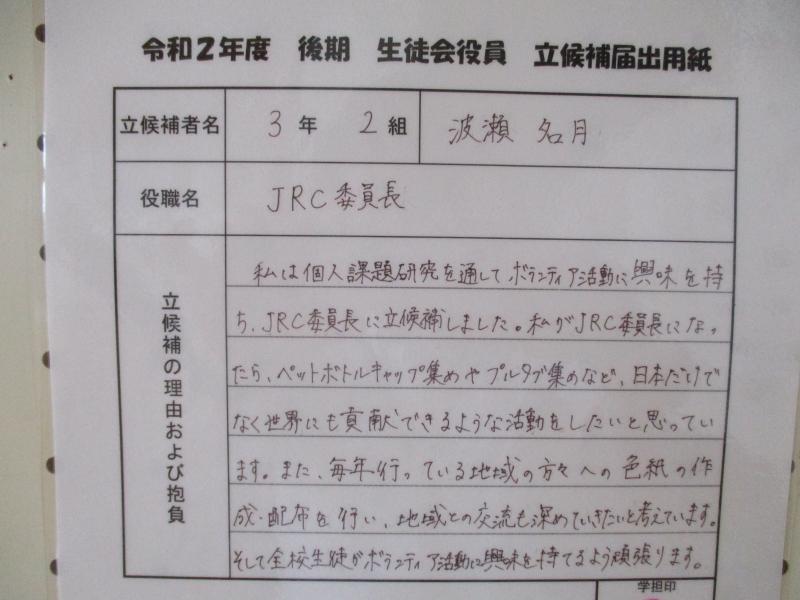 令和2年度 後期 生徒会役員 立候補届出用紙
立候補者名 3年 2組 波瀬 名月
役職名 JRC委員長
立候補の理由および抱負
私は個人課題研究を通してボランティア活動に興味を持
ち、JRC委員長に立候補しました。私がJRC委員長になっ
たら、ペットボトルキャップ集めやプルタブ集めなど、日本だけで
なく世界にも貢献できるような活動をしたいと思ってい
ます。また、毎年行っている地域の方々への色紙の作
成・配布を行い、地域との交流も深めていきたいと考えています。
そして全校生徒がボランティア活動に興味を持てるよう頑張ります。
学担印